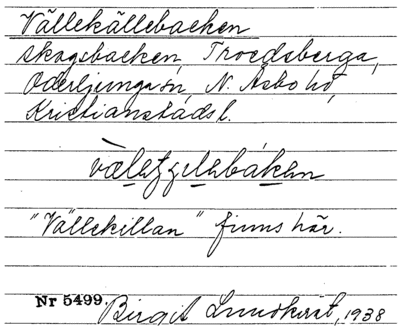 Vällekällebacken
skogsbacken, Troedsberga,
Oderljunga sn, N. Åsbo hd,
Kristianstads l.
"Vällekillan" finns här.
Nr 5499. Birgit Lundkvist, 1938